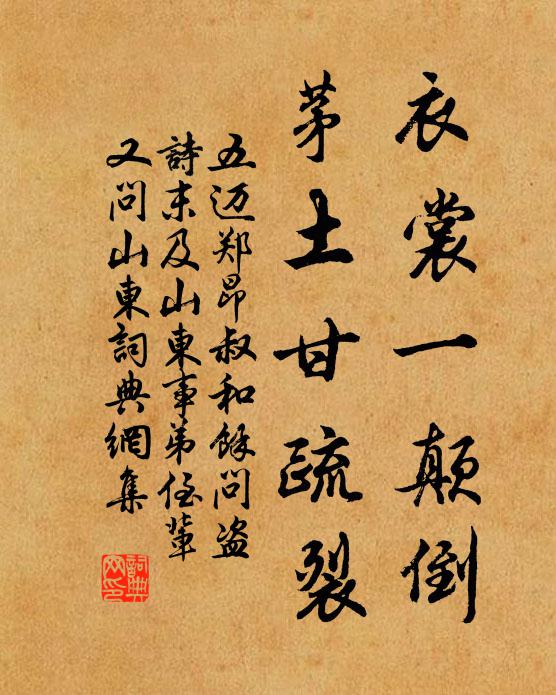 衣裳一颠倒
茅土甘疏裂
五迈郑昂叔和馀问盗
詩末及山東事弟侄輩
又问山東詞典網集
詞典网印